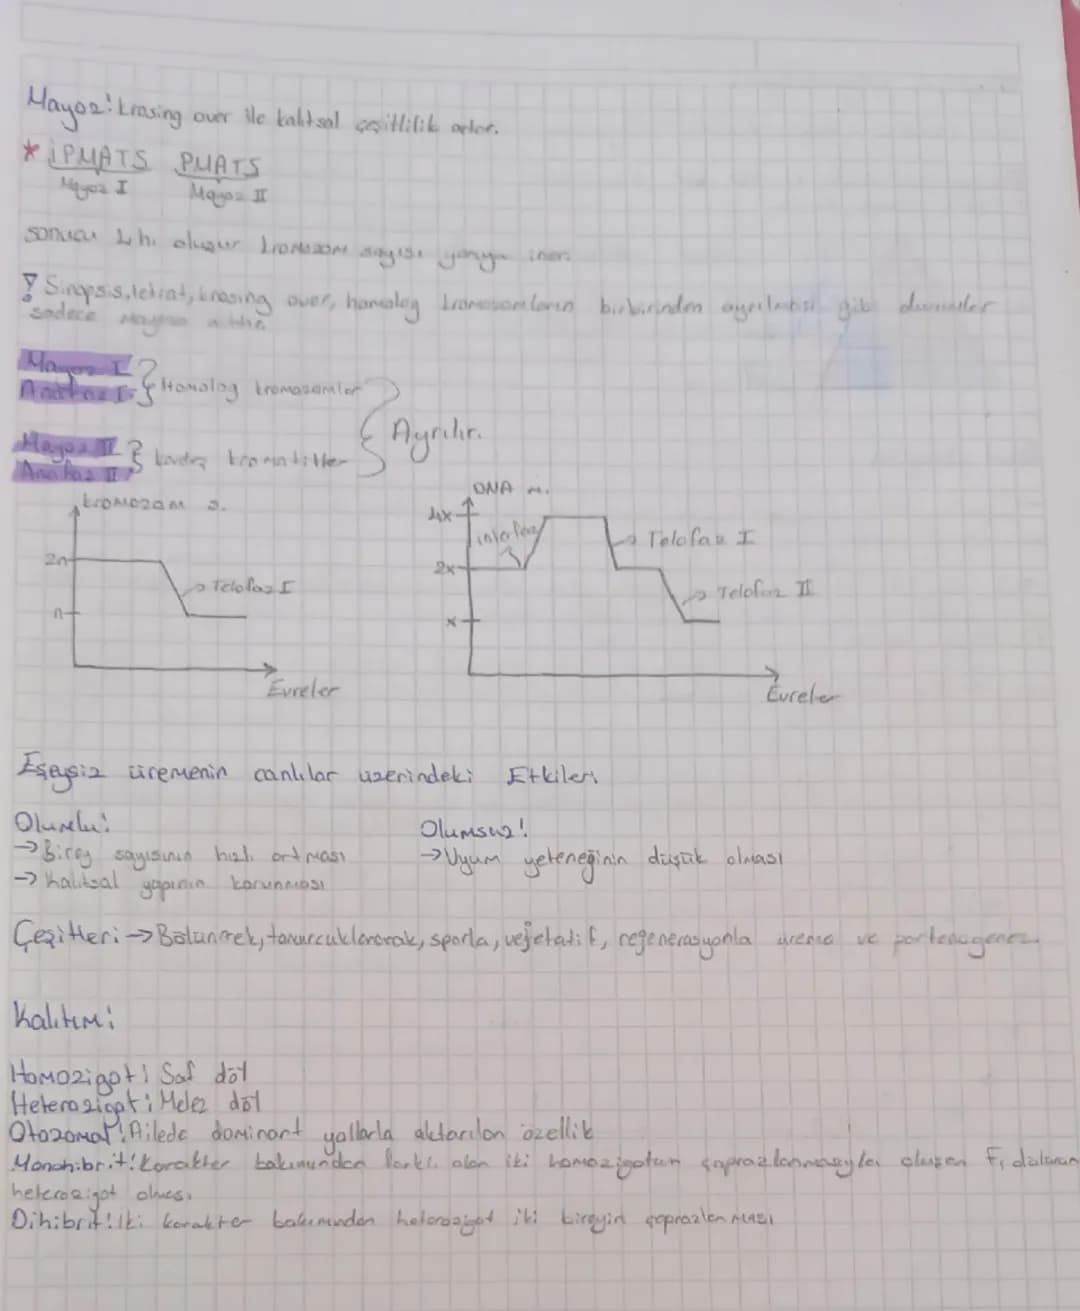 Mayoz: Krosing over ile kalıtsal çeşitlilik artar.
* İPMATS PMATS
Mayoz I Mayoz II
sonucu 4 h. oluşur kromozom sayısı yarıya iner.
! Sinapsis, tetrat, krosing over, homolog kromozomların birbirinden ayrılması gibi durumlar
sadece
Mayoz I
Anafaz I } Homolog kromozomlar
} Ayrılır.
Mayoz II
Anafaz II } kardeş kromatitler
kromozom s.
2n
n
Telofaz I
Evreler
DNA m.
4x
2x
x
interfaz
Telofaz I
Telofaz II
Evreler
Eşeysiz üremenin canlılar üzerindeki Etkileri
Olumlu:
→ Birey sayısının hızlı artması
→ Kalıtsal yapının korunması
Olumsuz:
→ Uyum yeteneğinin düşük olması
Çeşitleri → Bölünerek, tomurcuklanarak, sporla, vejetatif, rejenerasyonla üreme ve partenogenez.
Kalıtım:
Homozigot: Saf döl
Heterozigot: Melez döl
Otozomal: Ailede dominant yollarla aktarılan özellik
Monohibrit: Karakter bakımından farklı olan iki homozigotun çaprazlanmasıyla oluşan F₁ dölünün
heterozigot olması
Dihibrit: İki karakter bakımından heterozigot iki bireyin çaprazlanması